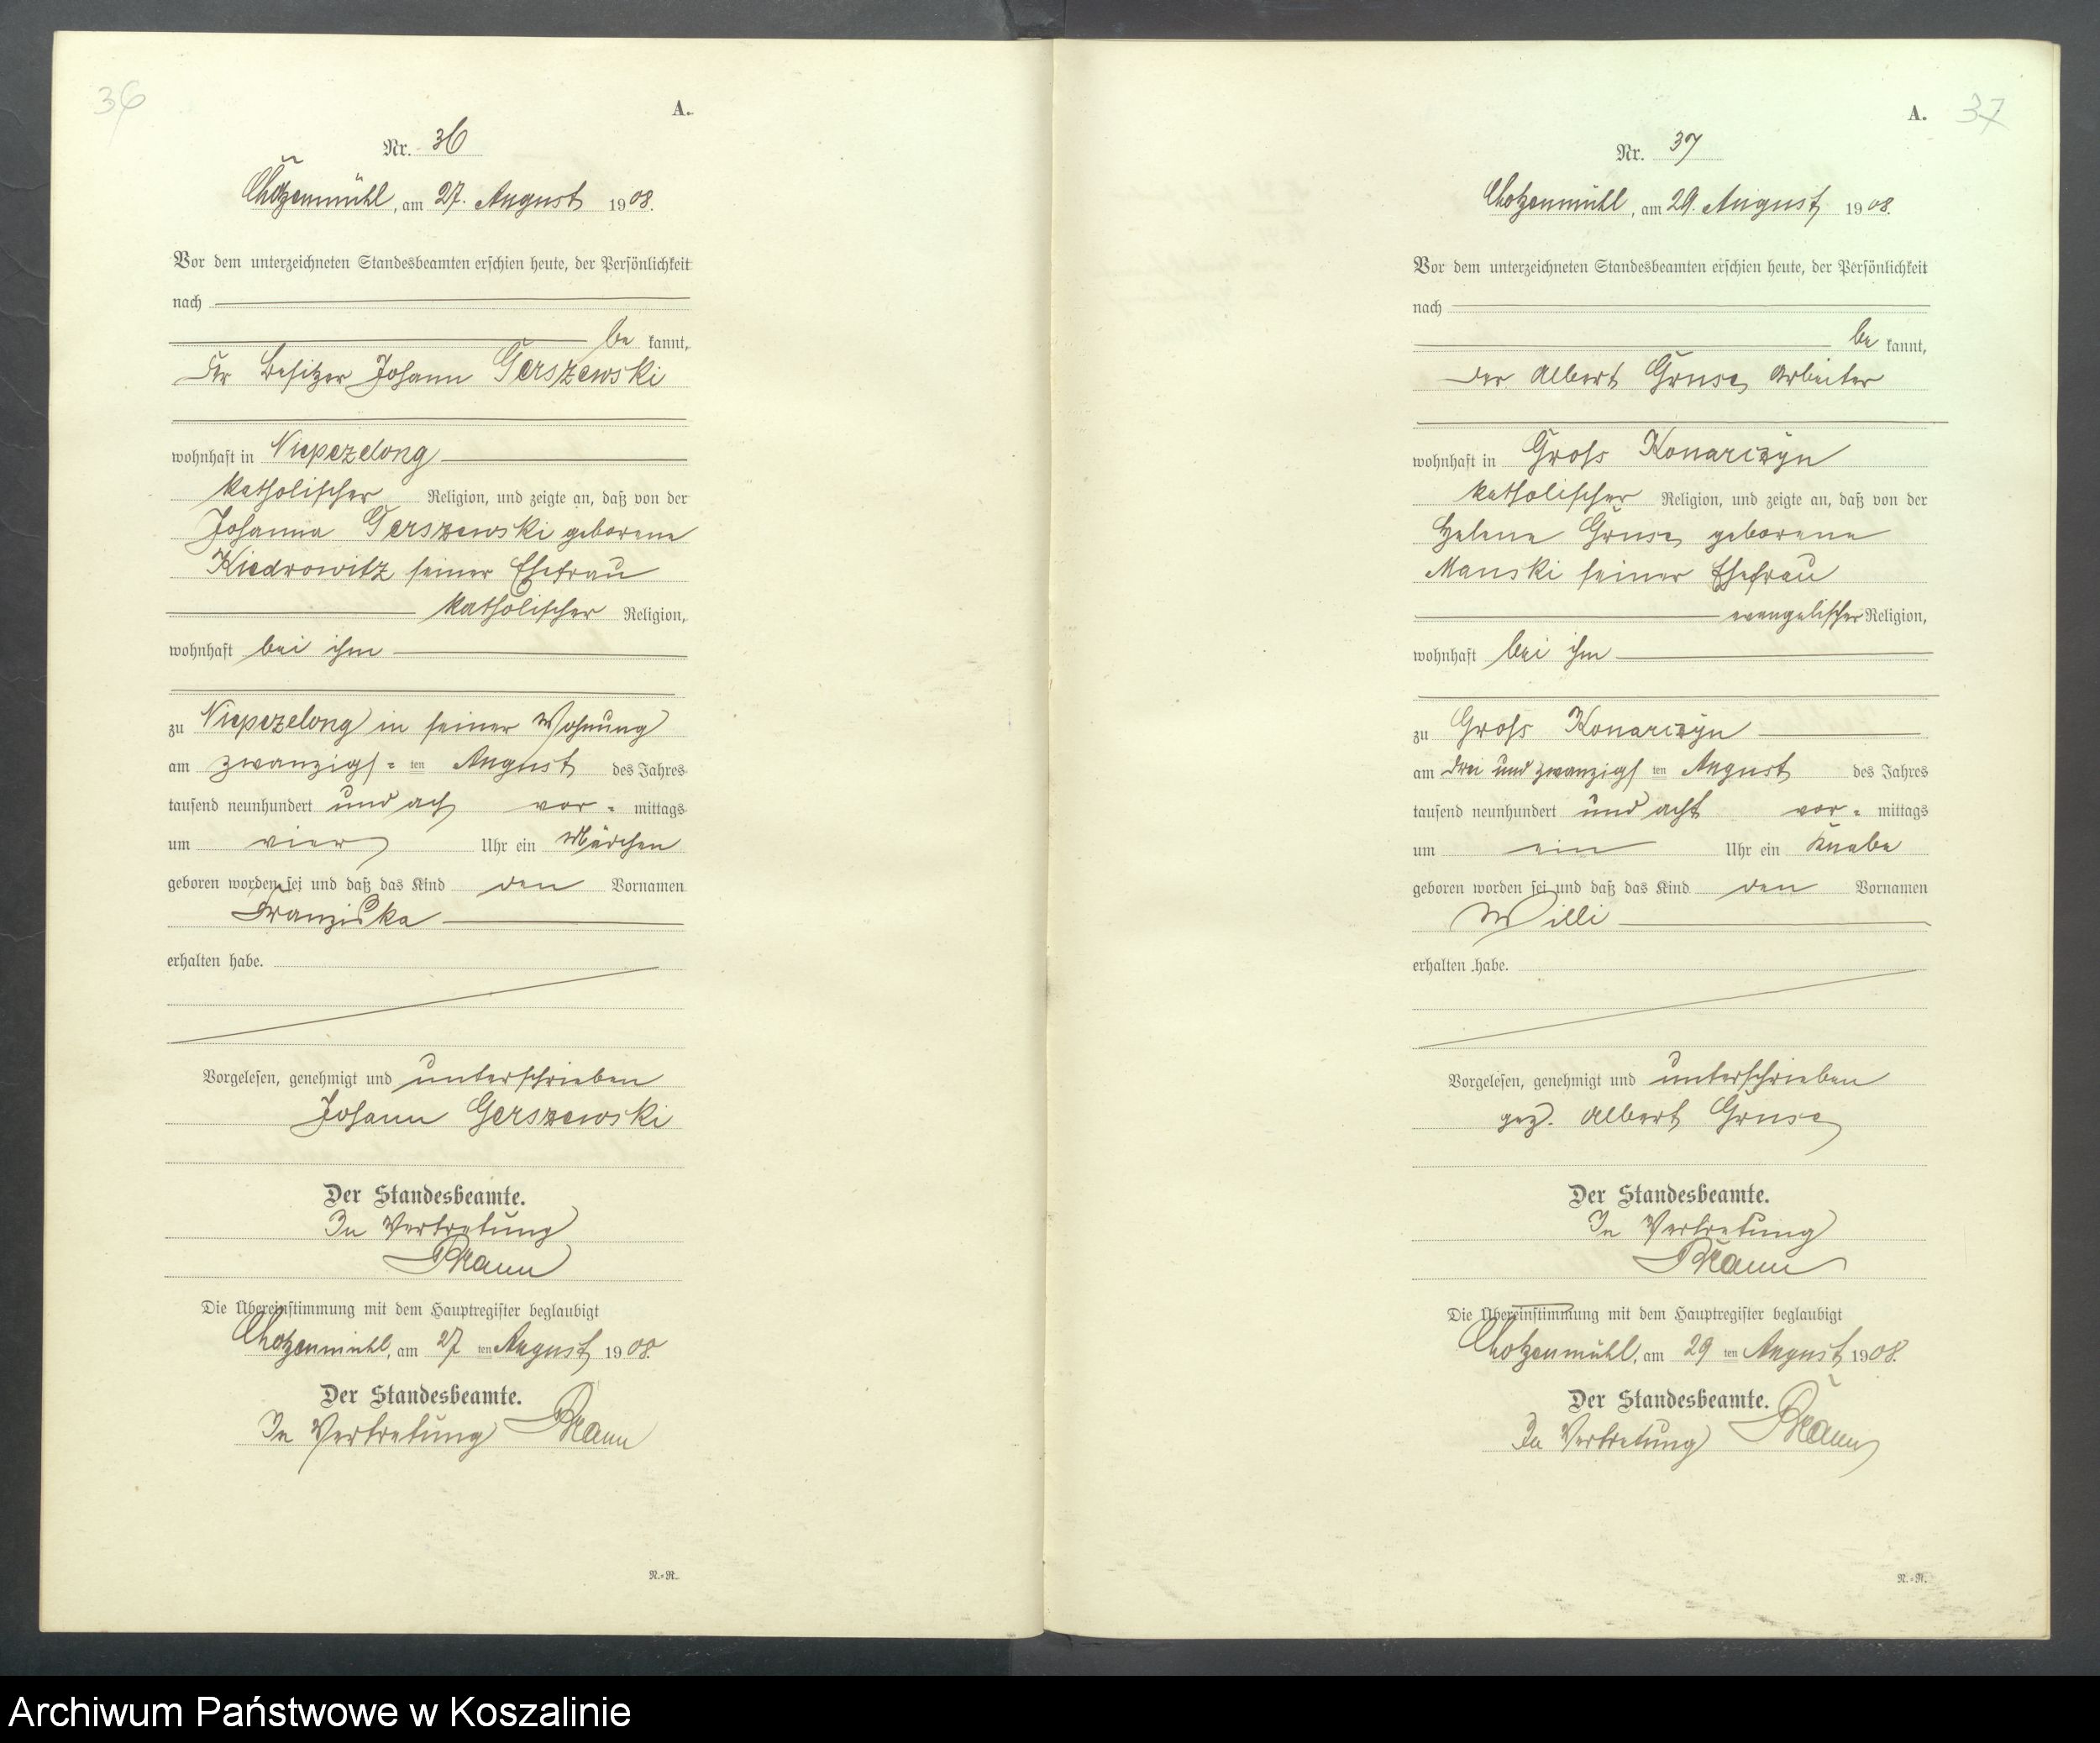 36
A.
Nr. 36
Chotzenmühl, am 27. August 1908.
Vor dem unterzeichneten Standesbeamten erschien heute, der Persönlichkeit
nach
be kannt,
der Besitzer Johann Gerszewski
wohnhaft in Niepczelong
katholischer Religion, und zeigte an, daß von der
Johanna Gerszewski geborene
Kiedrowitz seiner Ehefrau
katholischer Religion,
wohnhaft bei ihm
zu Niepczelong in seiner Wohnung
am zwanzigs=ten August des Jahres
tausend neunhundert und acht vor= mittags
um vier Uhr ein Mädchen
geboren worden sei und daß das Kind den Vornamen
Franziska
erhalten habe.
Vorgelesen, genehmigt und unterschrieben
Johann Gerszewski
Der Standesbeamte.
In Vertretung
Die Übereinstimmung mit dem Hauptregister beglaubigt
Chotzenmühl, am 27 ten August 1908.
Der Standesbeamte.
In Vertretung
N.=R.
37
A.
Nr. 37
Chotzenmühl, am 29. August 1908.
Vor dem unterzeichneten Standesbeamten erschien heute, der Persönlichkeit
nach
be kannt,
der Albert Gruse, Arbeiter
wohnhaft in Groß Konarczyn
katholischer Religion, und zeigte an, daß von der
Helene Gruse, geborene
Manski seiner Ehefrau
evangelischer Religion,
wohnhaft bei ihm
zu Groß Konarczyn
am drei und zwanzigs ten August des Jahres
tausend neunhundert und acht vor= mittags
um ein Uhr ein Knabe
geboren worden sei und daß das Kind den Vornamen
Willi
erhalten habe.
Vorgelesen, genehmigt und unterschrieben
gez. Albert Gruse
Der Standesbeamte.
In Vertretung
Die Übereinstimmung mit dem Hauptregister beglaubigt
Chotzenmühl, am 29 ten August 1908.
Der Standesbeamte.
In Vertretung
N.=R.
Archiwum Państwowe w Koszalinie